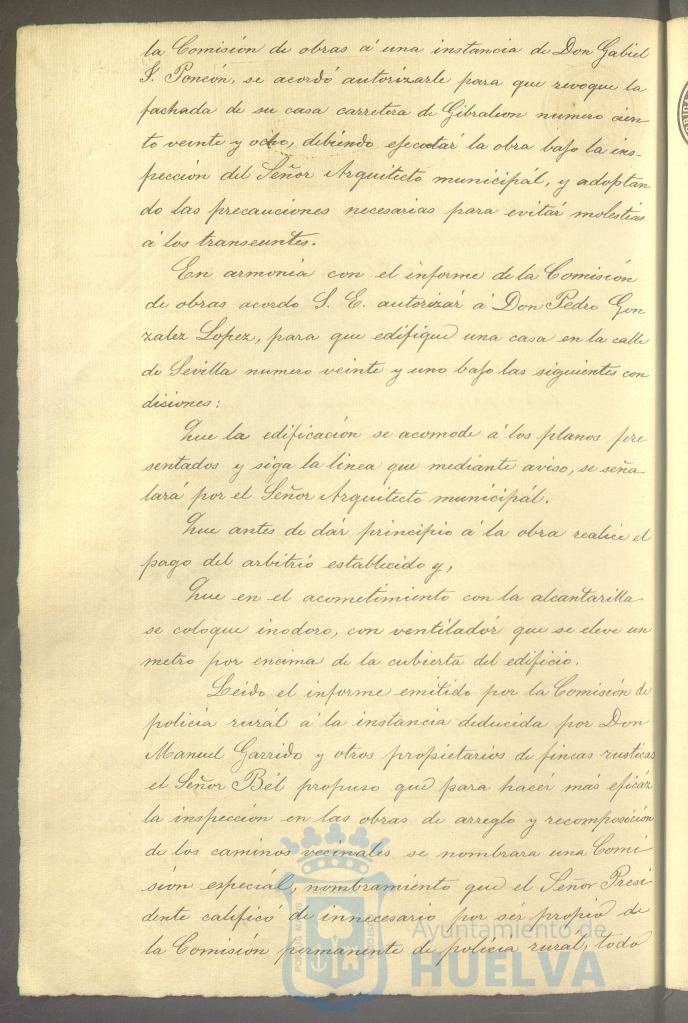 la Comisión de obras á una instancia de Don Gabiel
S. Poncón, se acordó autorizarle para que revoque la
fachada de su casa carretera de Gibraleon numero cien
to veinte y ocho, debiendo ejecutár la obra bajo la ins-
pección del Señor Arquitecto municipál, y adoptan
do las precauciones necesarias para evitár molestias
á los transeuntes.
En armonia con el informe de la Comisión
de obras acordo S. E. autorizár á Don Pedro Gon
zalez Lopez, para que edifique una casa en la calle
de Sevilla numero veinte y uno bajo las siguientes con
diciones:
Que la edificación se acomode á los planos pre
sentados y siga la linea que mediante aviso, se seña
lará por el Señor Arquitecto municipál.
Que antes de dár principio á la obra realice el
pago del arbitrio establecido y,
Que en el acometimiento con la alcantarilla
se coloque inodoro, con ventiladór que se eleve un
metro por encima de la cubierta del edificio.
Leido el informe emitido por la Comisión de
policia rurál á la instancia deducida por Don
Manuel Garrido y otros propietarios de fincas rusticas
el Señor Bél propuso que para hacér más eficáz
la inspección en las obras de arreglo y recomposición
de los caminos vecinales se nombrara una Comi
sión especiál, nombramiento que el Señor Presi
dente calificó de innecesario por sér propio de
la Comisión permanente de policia rural, todo
Ayuntamiento de
HUELVA